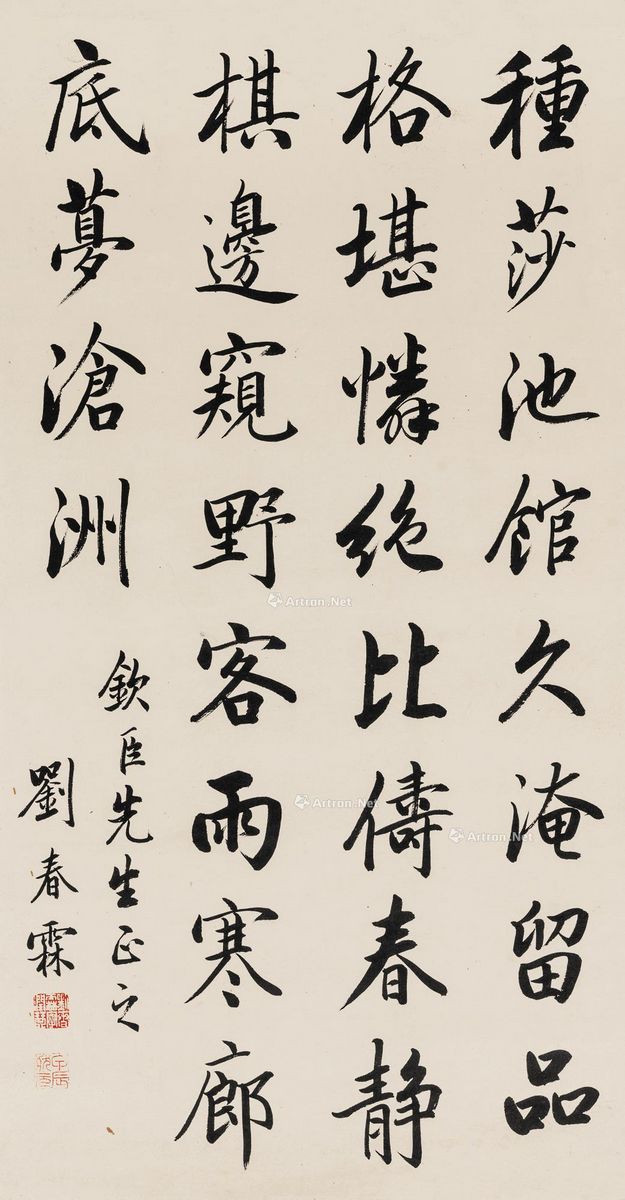 種莎池館久淹留品
格堪憐絶比儔春静
棋邊窺野客雨寒廊
底夢滄洲
欽臣先生正之
劉春霖
Artron.Net
Artron.Net
Artron.Net